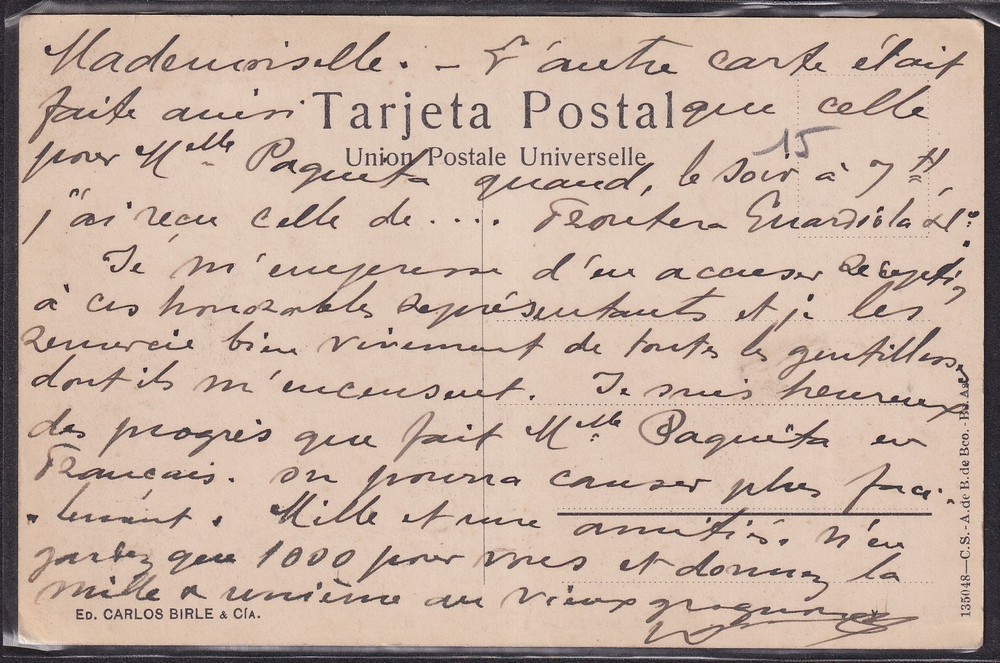 Mademoiselle. – L'autre carte était
faite ainsi que celle
Tarjeta Postal
Union Postale Universelle
15
pour Mlle Paquita quand, le soir à 7 H
j'ai reçu celle de.... Frontera Guardiola
Je m'empresse d'en accuser réception
à ces honorables représentants et je les
remercie bien vivement de toutes les gentillesses
dont ils m'encensent. Je suis heureux
des progrès que fait Mlle Paquita en
Français. on pourra causer plus faci-
lement. Mille et une amitiés. n'en
gardez que 1000 pour vous et donnez la
mille & unième au vieux grognon
ED. CARLOS BIRLE & CÍA.
135048—C. S.-A. de B. de Bco.-Bs. As.